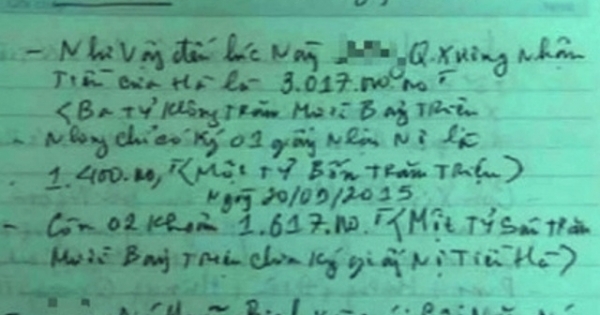 - Như Vậy đến lúc Này Q. Xưởng Nhận
Tiền của Hà là 3.017.000.000đ
<Ba Tỷ Không Trăm Mười Bảy Triệu
Nhưng chỉ có Ký 01 giấy Nhận Nợ là
1.400.000,đ <Một Tỷ Bốn Trăm Triệu>
Ngày 20/09/2015
- Còn 02 Khoản 1.617.000.đ <Một Tỷ Sáu Trăm
Mười Bảy Triệu chưa Ký giấy Nợ Tiền Hà>